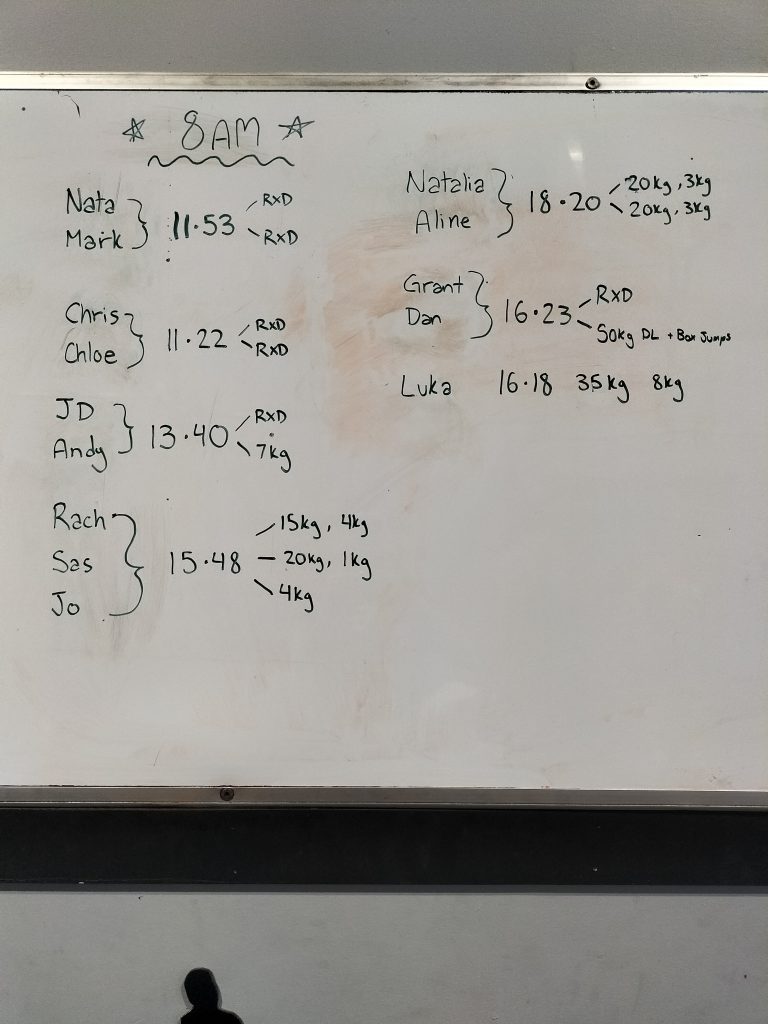 ☆ 8AM ☆
Nata
Mark } 11.53 RxD
RxD
Chris
Chloe } 11.22 RxD
RxD
JD
Andy } 13.40 RxD
7kg
Rach
Sas
Jo } 15.48 15kg, 4kg
20kg, 1kg
4kg
Natalia
Aline } 18.20 20kg, 3kg
20kg, 3kg
Grant
Dan } 16.23 RxD
50kg DL + Box Jumps
Luka 16.18 35kg 8kg